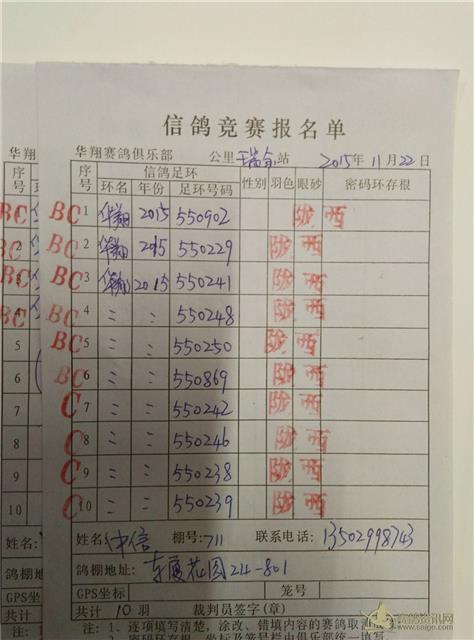 信鸽竞赛报名单
华翔赛鸽俱乐部 公里瑞金站 2015年11月22日
序号 信鸽足环 性别 羽色 眼砂 密码环存根
环名 年份 足环号码
BC 1 华翔 2015 550902 陇西
BC 2 华翔 2015 550229 陇西
BC 3 华翔 2015 550241 陇西
BC 4 〃 〃 550248 陇西
BC 5 〃 〃 550250 陇西
BC 6 〃 〃 550869 陇西
C 7 〃 〃 550242 陇西
C 8 〃 〃 550246 陇西
C 9 〃 〃 550238 陇西
C 10 〃 〃 550239 陇西
姓名: 中信 棚号: 711 联系电话: 13502998743
鸽棚地址: 东厦花园24-801
GPS坐标 笼号
共计 10 羽 裁判员签字(章)
注: 1、逐项填写清楚, 涂改、错填内容的赛鸽取消
华翔
序号
BC
BC
BC
BC
5
6
7
8
9
10
姓名
鸽棚地
GPS坐
共计